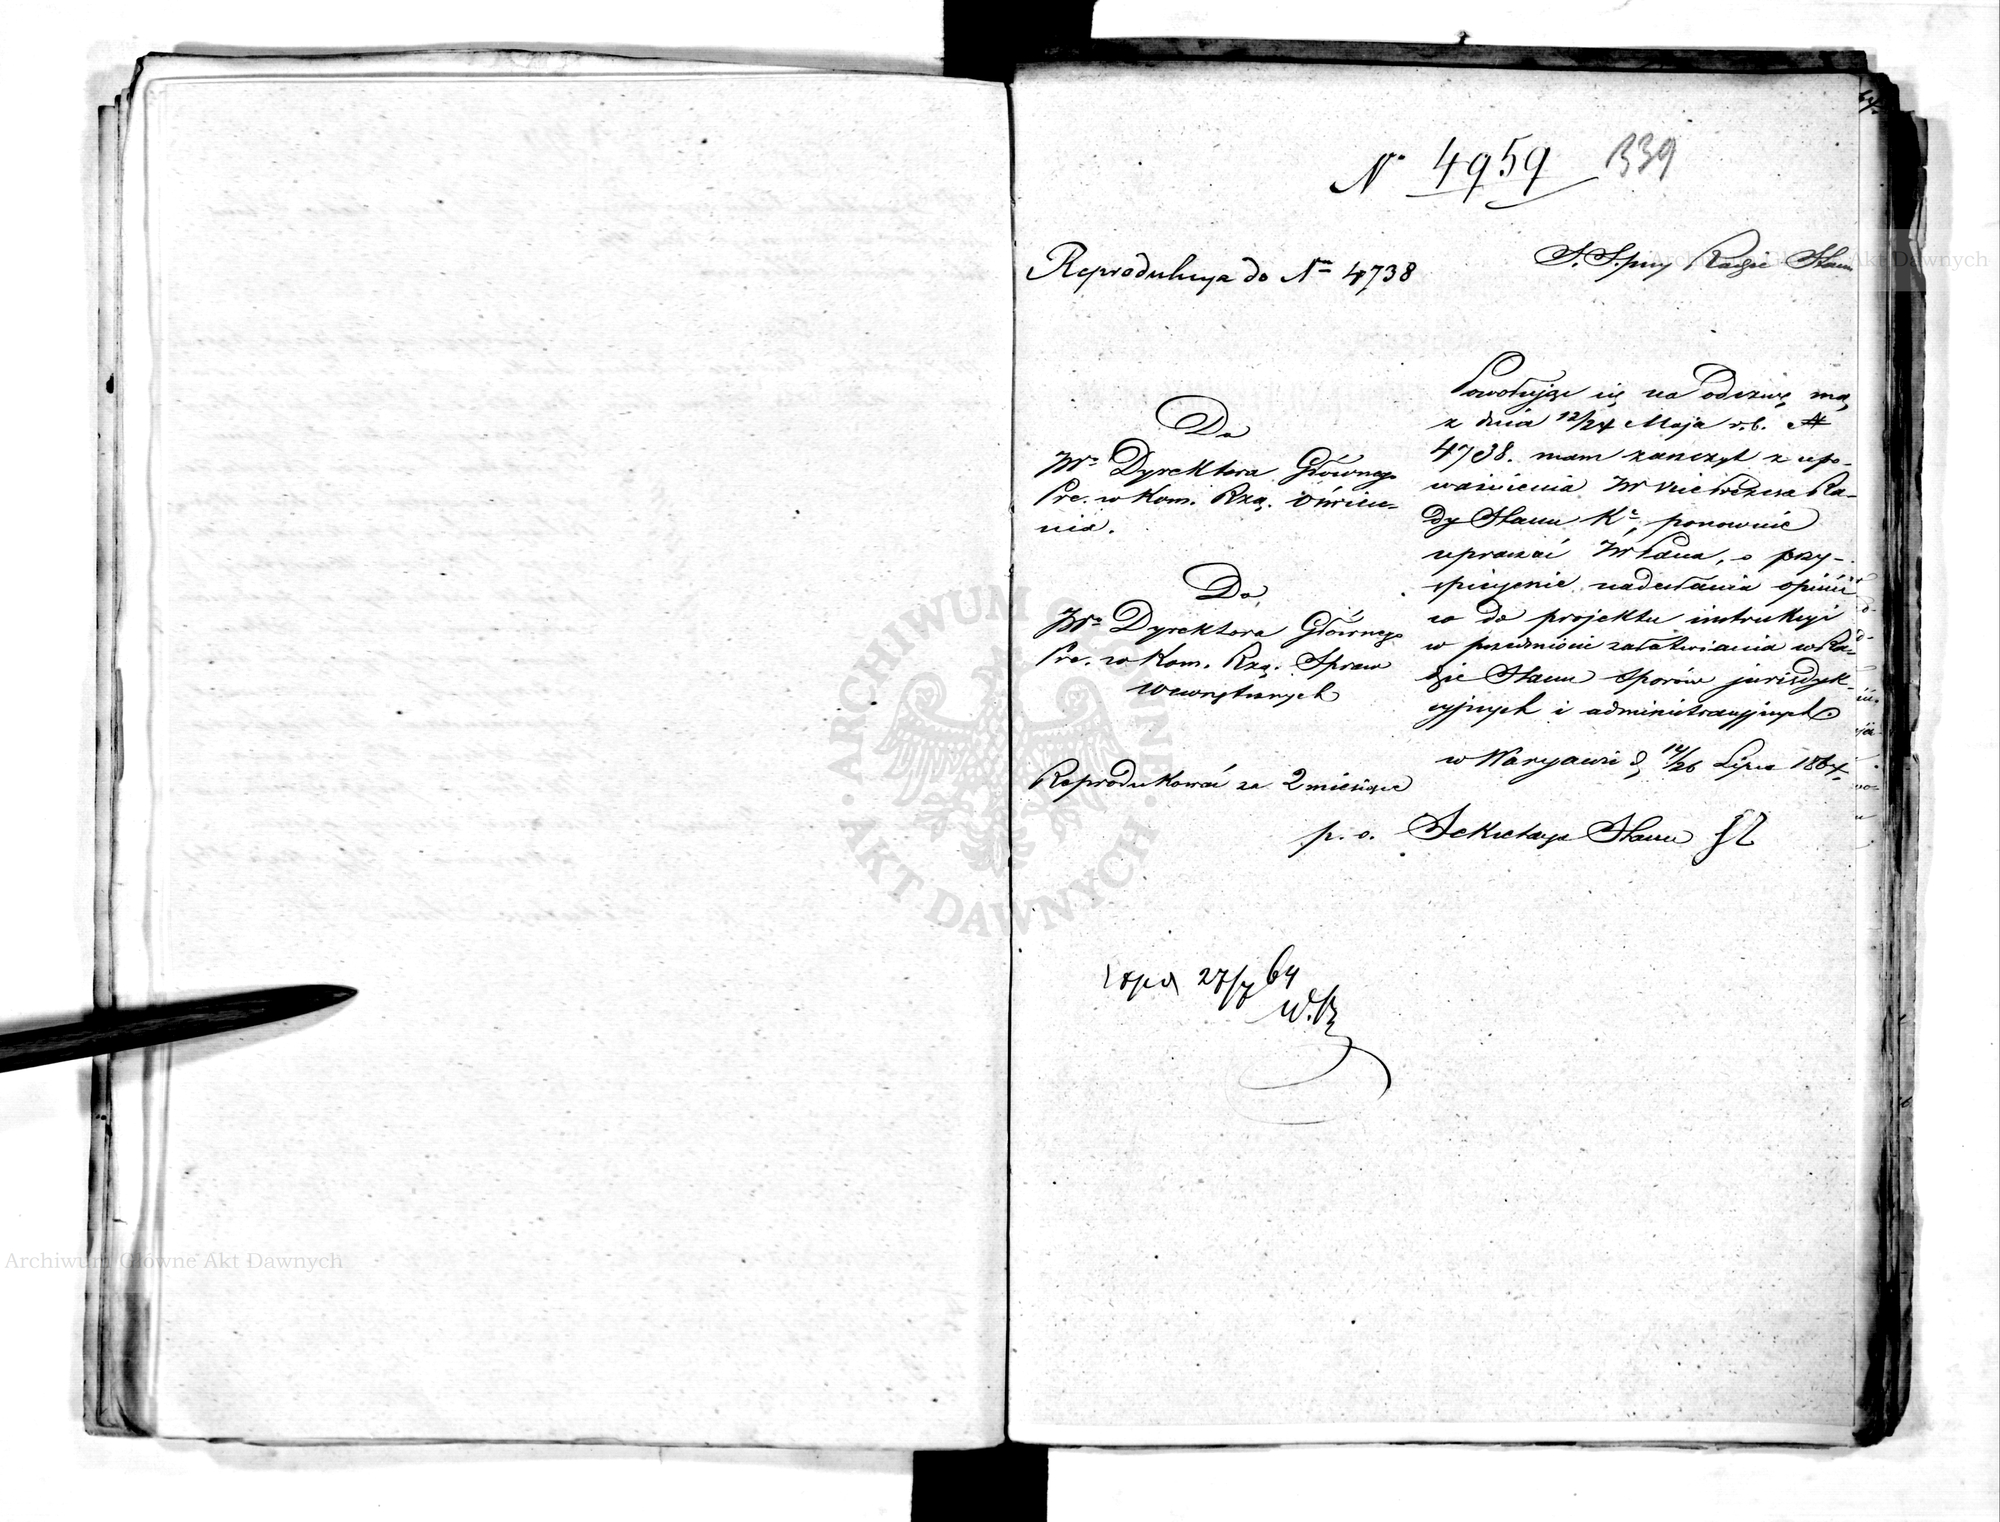 64
N° 4959 339
Reprodukcya do Nru 4738
Radzie Stanu
Do
JWo Dyrektora Głównego
Pre. w Kom. Rzą. Oświece-
nia.
Do
JWo Dyrektora Głównego
Pre. w Kom. Rzą. Spraw
Wewnętrznych
Reprodukować za 2 miesiące
Powołując się na odezwę mą
z dnia 12/24 Maja r.b. N
4738. mam zaszczyt z upo-
ważnienia JW Vice Prezesa Ra-
dy Stanu Kr, ponownie
upraszać JW Pana, o przy-
spieszenie nadesłania opinii
co do projektu instrukcyi
w przedmiocie załatwiania w Ra-
dzie Stanu sporów jurisdyk-
cyjnych i administracyjnych.
w Warszawie d. 14/26 Lipca 1864
p. o. Sekretarza Stanu
27/7 64
ARCHIWUM GŁÓWNE AKT DAWNYCH
Archiwum Główne Akt Dawnych
Archiwum Główne Akt Dawnych